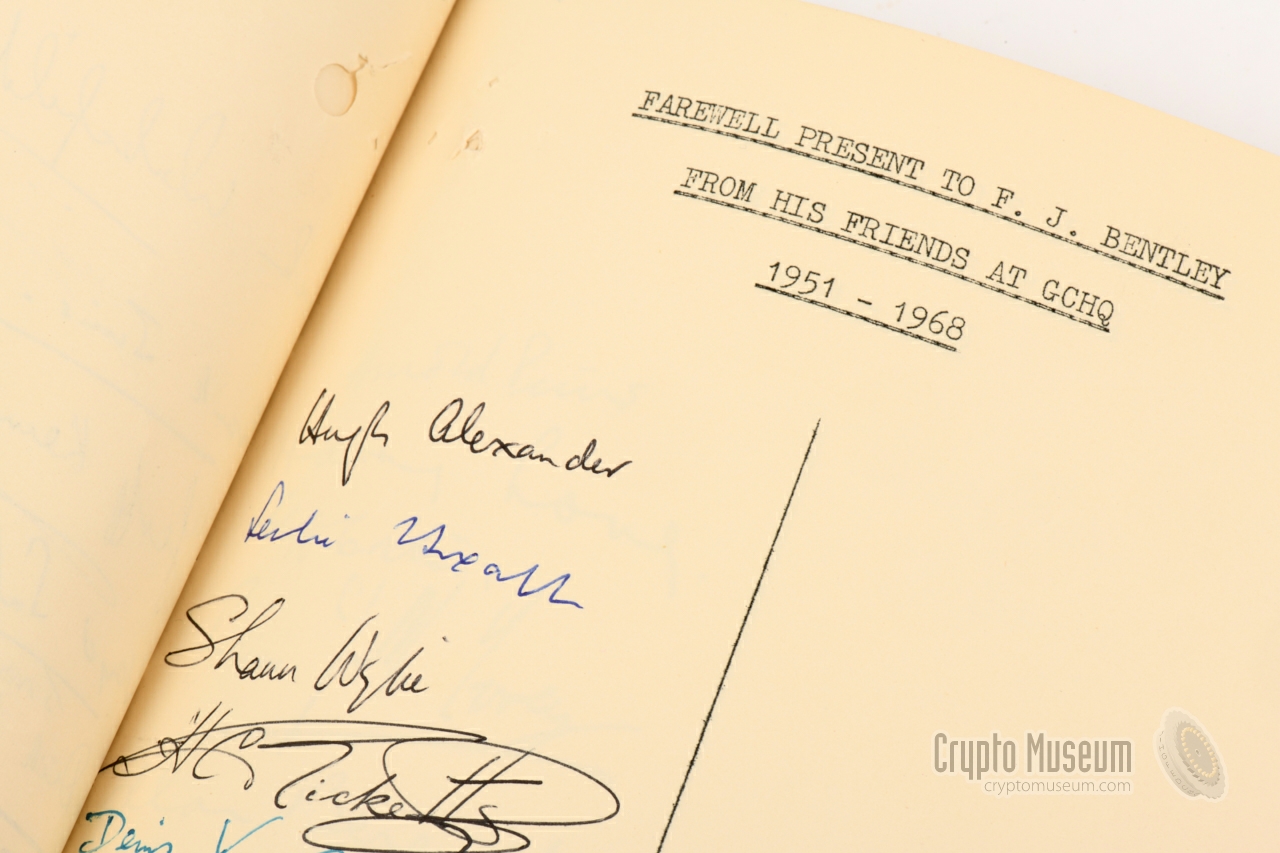 FAREWELL PRESENT TO F. J. BENTLEY
FROM HIS FRIENDS AT GCHQ
1951 - 1968
Hugh Alexander
Leslie Yoxall
Shaun Wylie
H C Ricketts
Denis
Crypto Museum
cryptomuseum.com